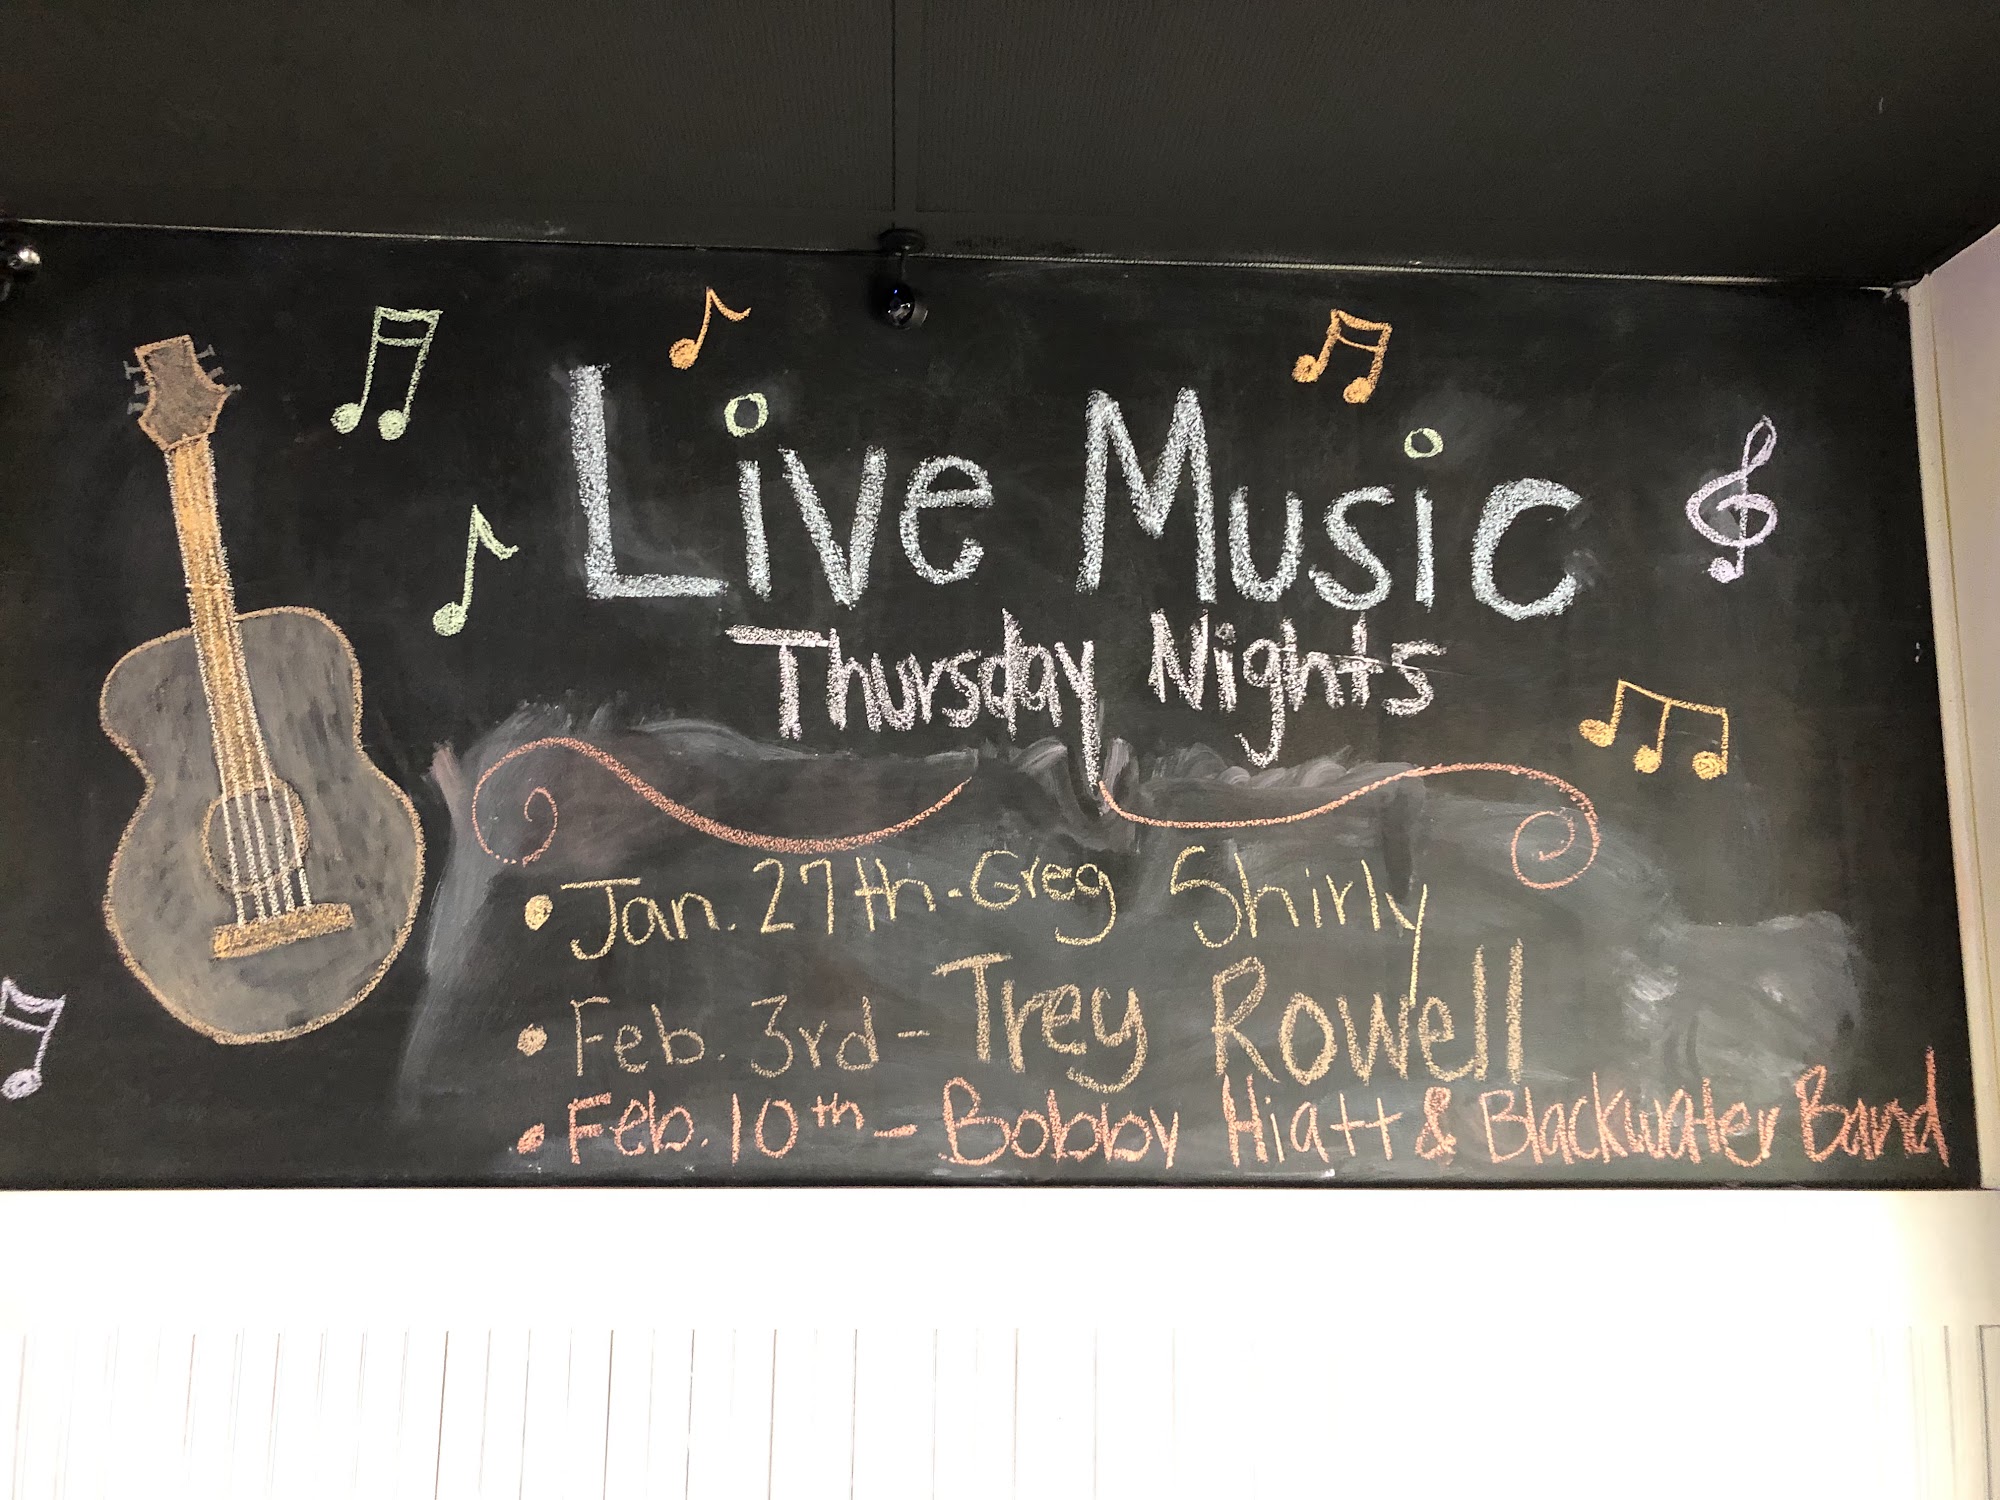 Live Music
Thursday Nights
• Jan. 27th - Greg Shirly
• Feb. 3rd - Trey Rowell
• Feb. 10th - Bobby Hiatt & Blackwater Band